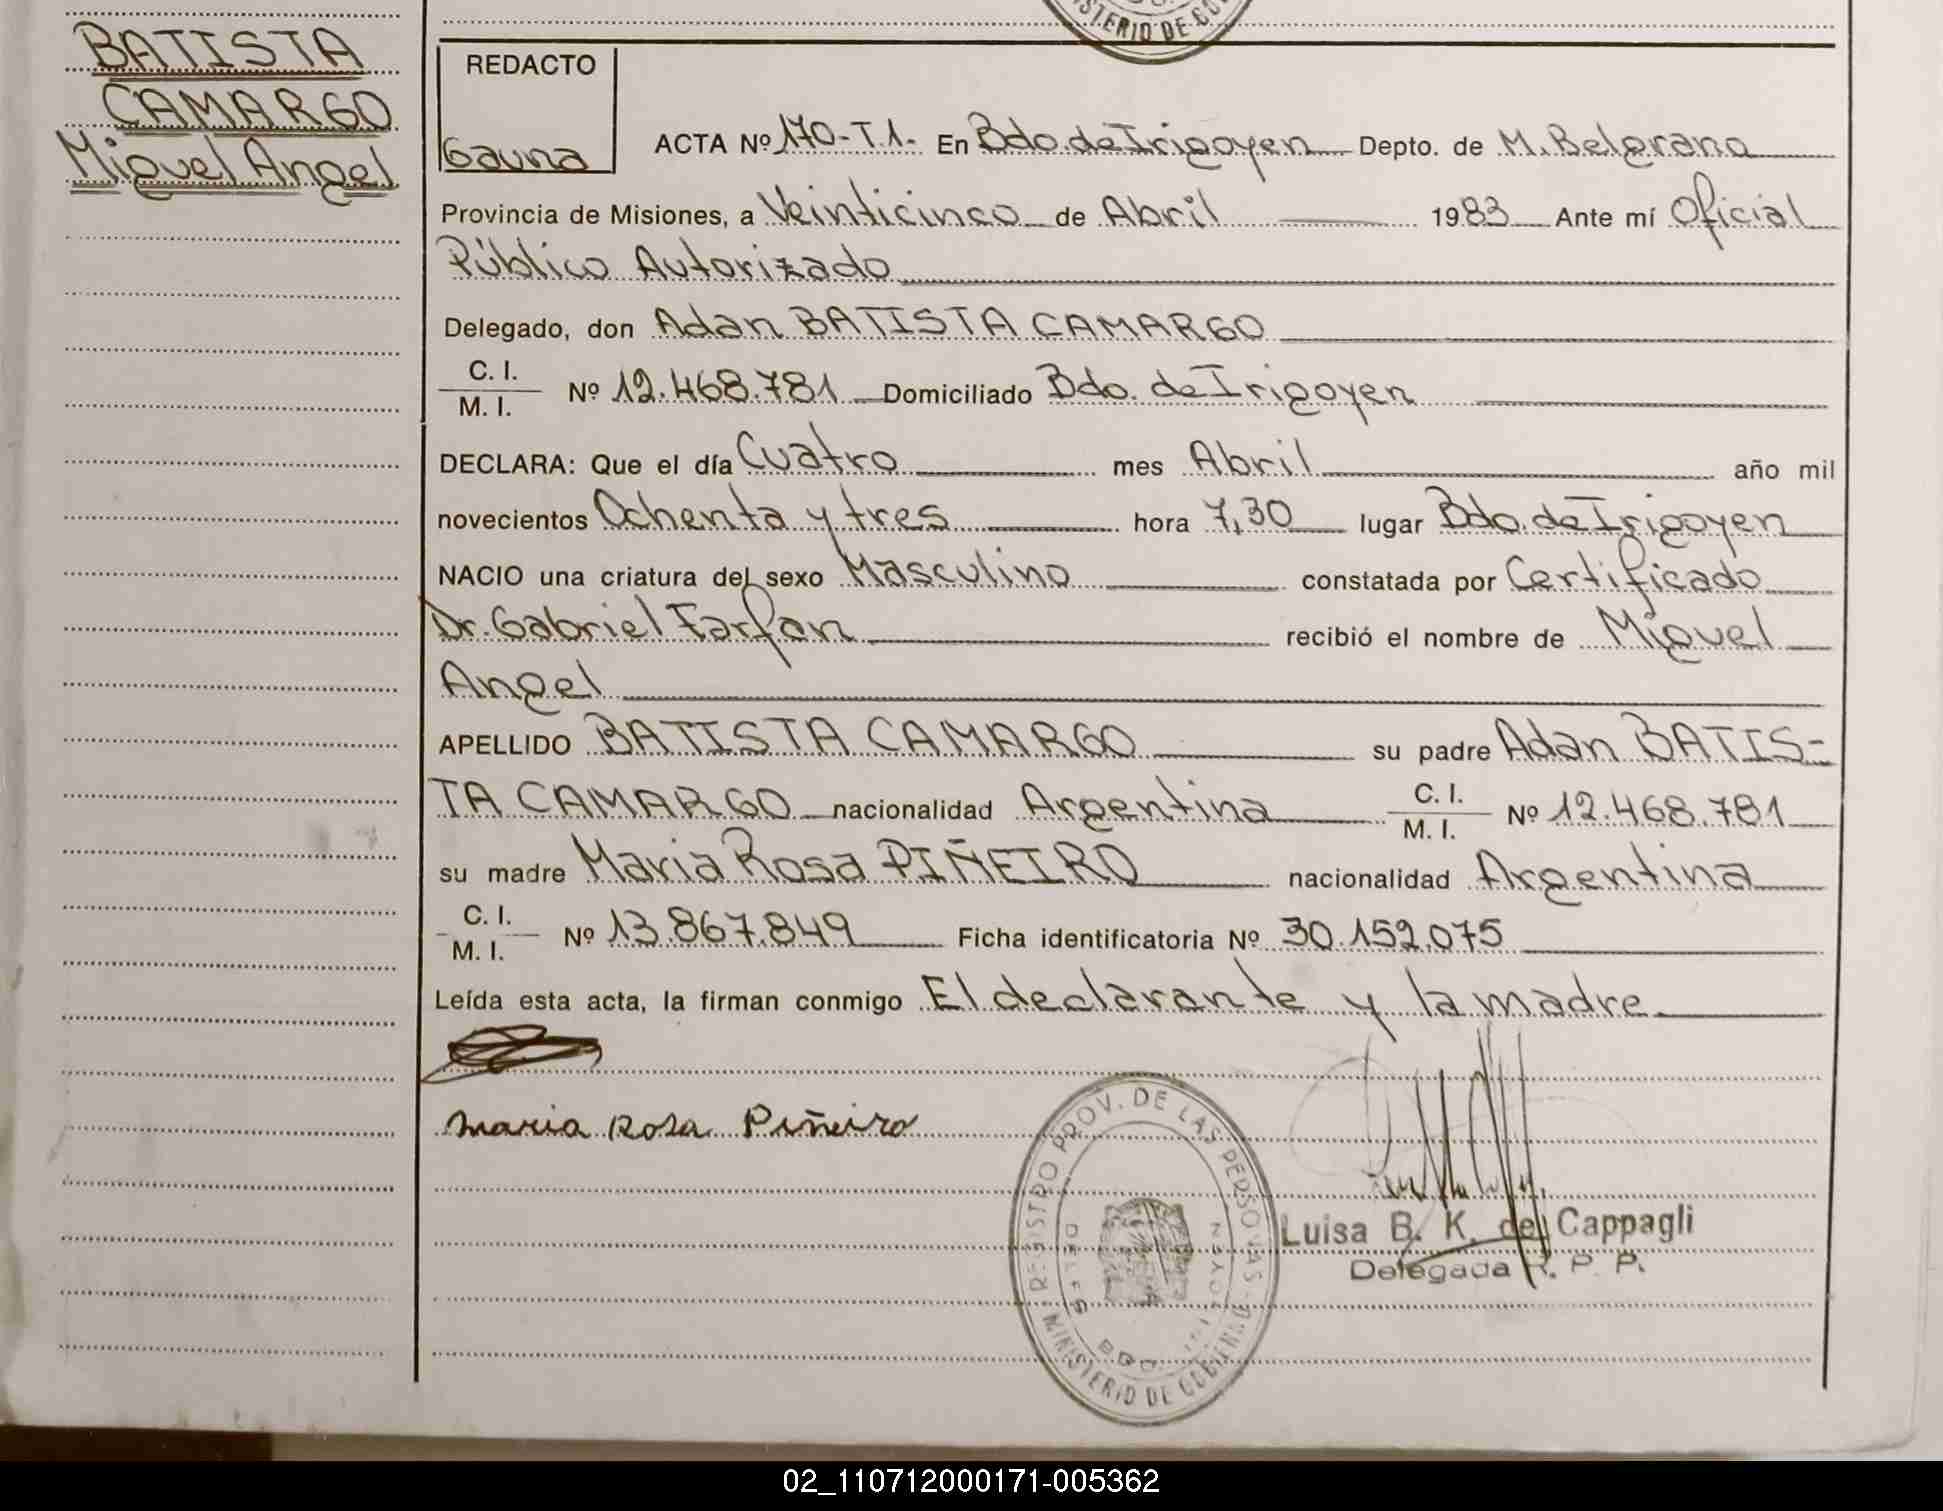 BATISTA
CAMARGO
Miguel Angel
REDACTO
Gauna
ACTA Nº 170-T.1. En Bdo. de Irigoyen Depto. de M. Belgrano
Provincia de Misiones, a Veinticinco de Abril 1983 Ante mí Oficial
Público Autorizado
Delegado, don Adan BATISTA CAMARGO
C. I.
M. I. Nº 12.468.781 Domiciliado Bdo. de Irigoyen
DECLARA: Que el día Cuatro mes Abril año mil
novecientos Ochenta y tres hora 7,30 lugar Bdo. de Irigoyen
NACIO una criatura del sexo Masculino constatada por Certificado
Dr. Gabriel Farfan recibió el nombre de Miguel
Angel
APELLIDO BATISTA CAMARGO su padre Adan BATIS-
TA CAMARGO nacionalidad Argentina C. I. M. I. Nº 12.468.781
su madre Maria Rosa PIÑEIRO nacionalidad Argentina
C. I.
M. I. Nº 13.867.849 Ficha identificatoria Nº 30.152.075
Leída esta acta, la firman conmigo El declarante y la madre.
Maria Rosa Piñeiro
REGISTRO PROV. DE LAS PERSONAS
MINISTERIO DE GOBIERNO
Luisa B. K. de Cappagli
Delegada R. P. P.
02_110712000171-005362